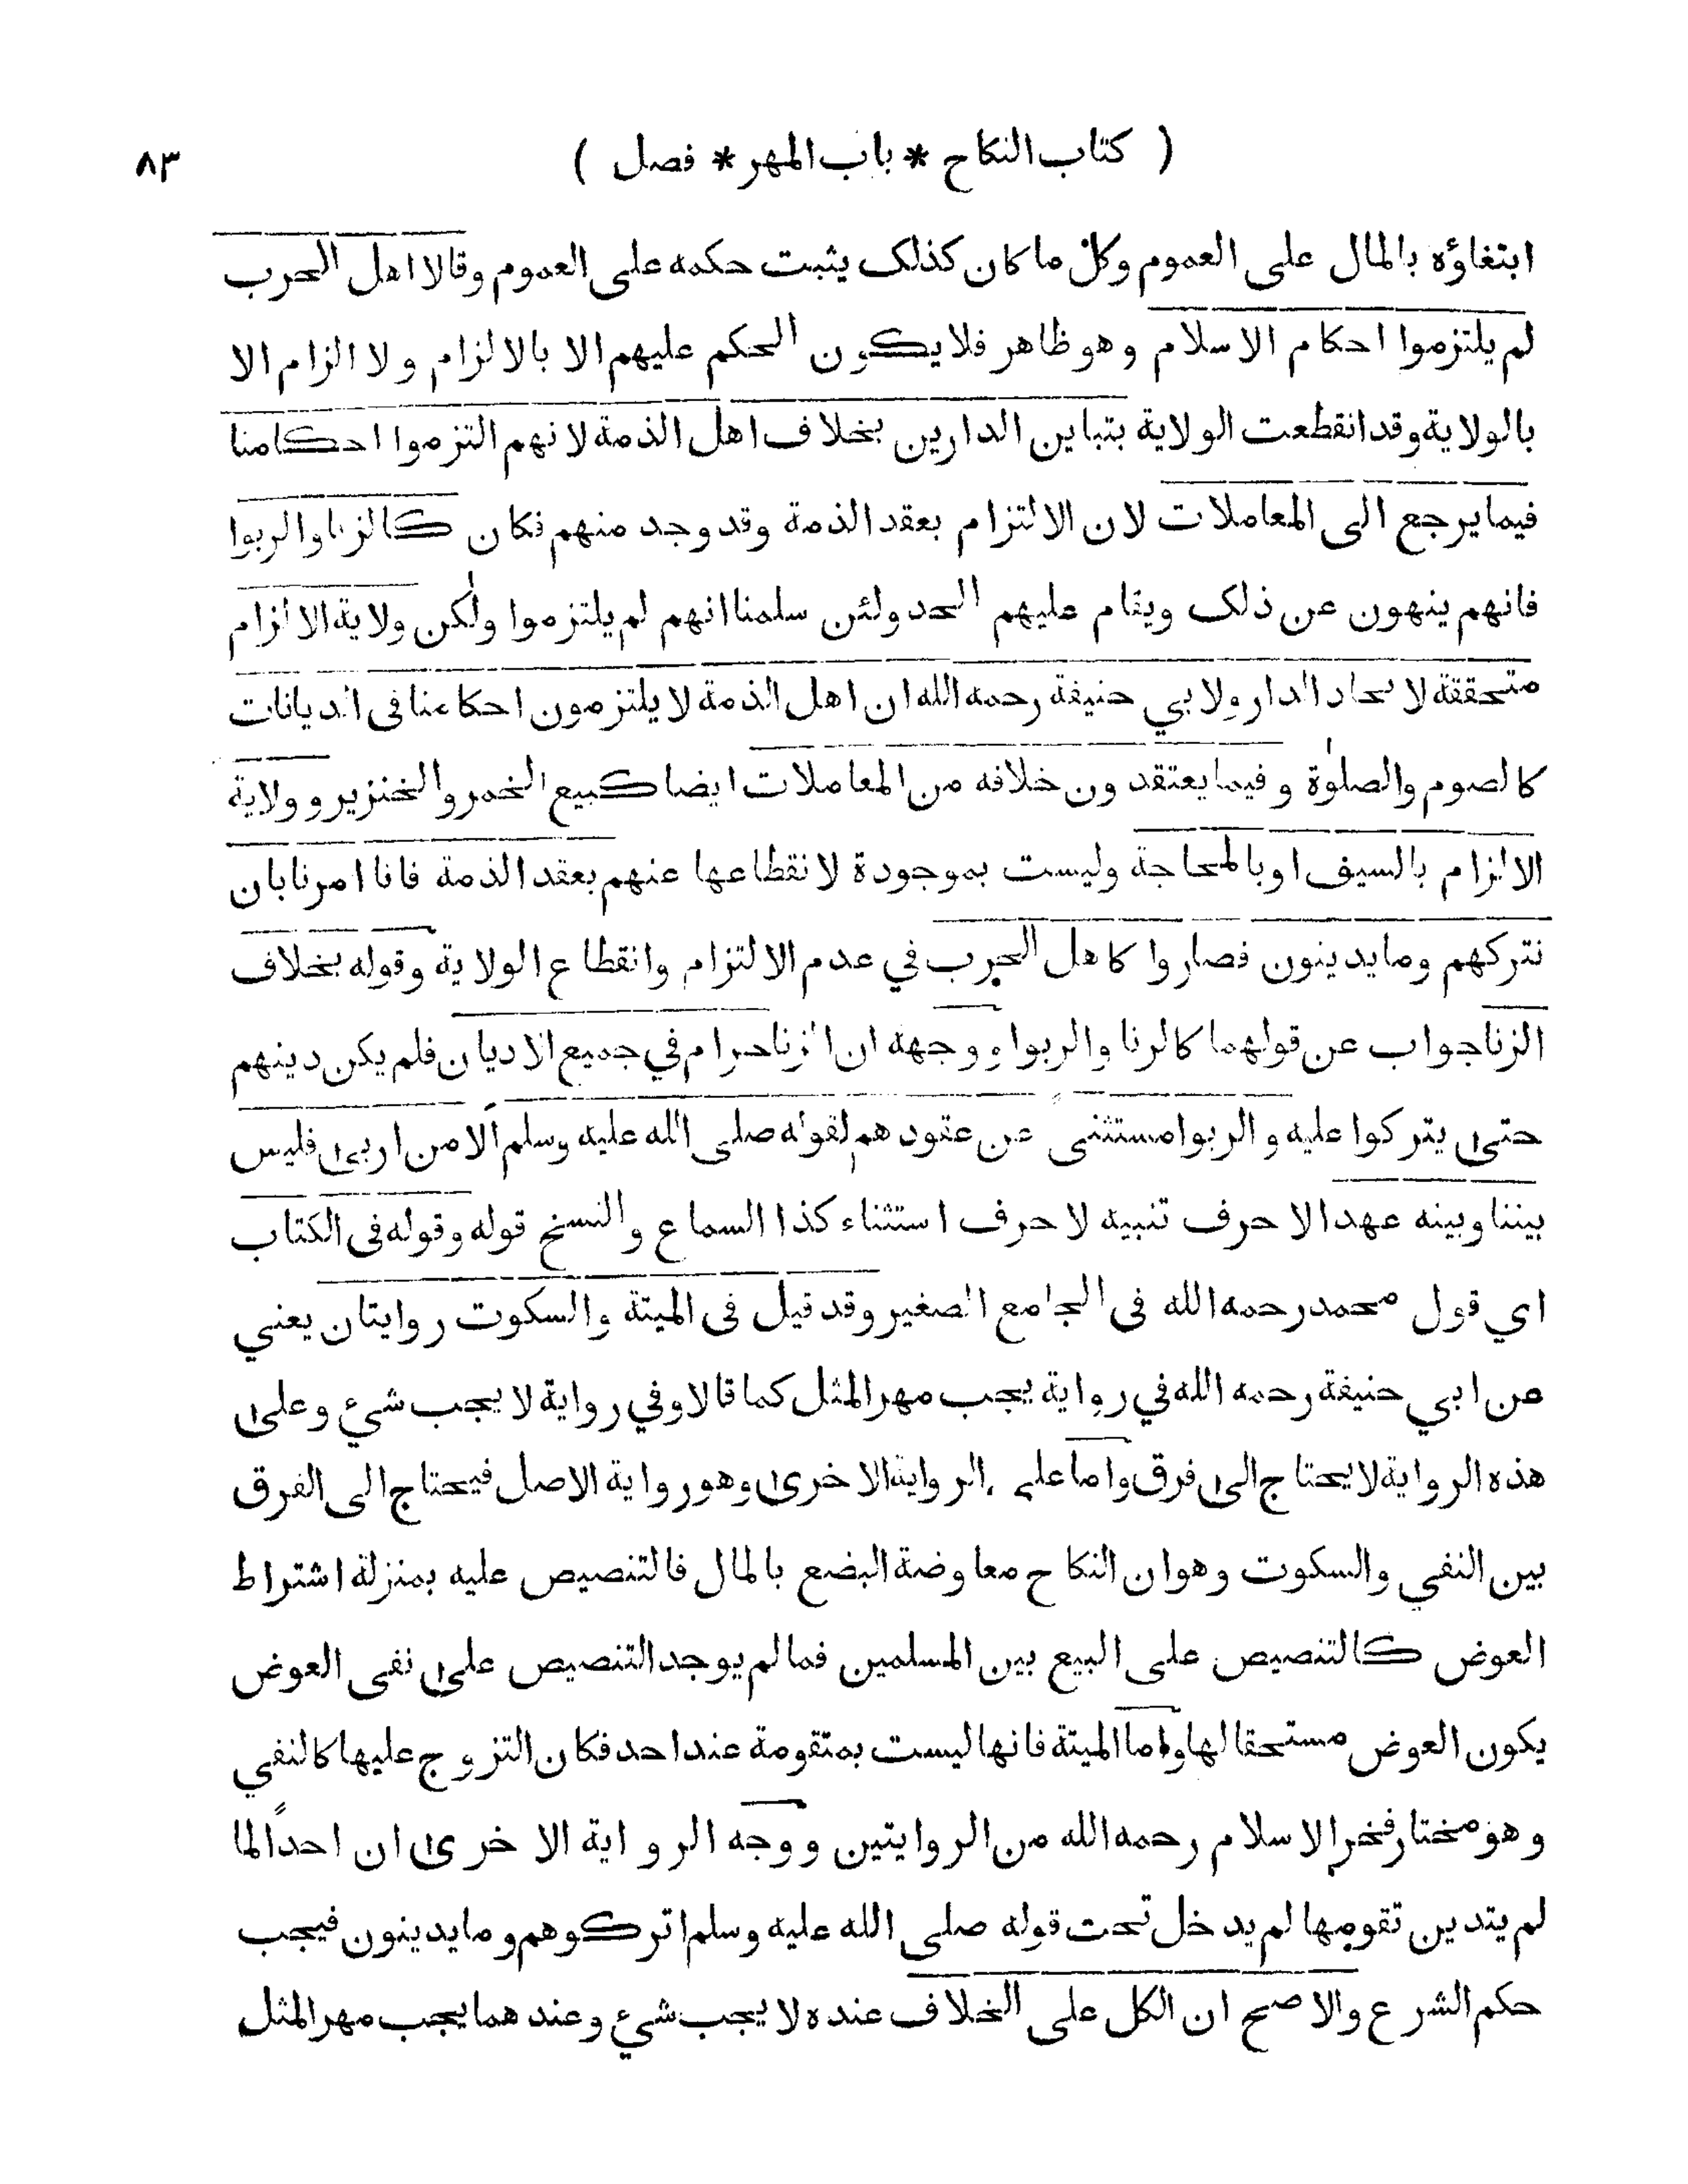 ( كتاب النكاح * باب المهر * فصل ) ٨٣
ابتغاؤه بالمال على العموم وكل ما كان كذلك يثبت حكمه على العموم وقالا اهل الحرب
لم يلتزموا احكام الاسلام وهو ظاهر فلا يكون الحكم عليهم الا بالالزام ولا الزام الا
بالولاية وقد انقطعت الولاية بتباين الدارين بخلاف اهل الذمة لانهم التزموا احكامنا
فيما يرجع الى المعاملات لان الالتزام بعقد الذمة وقد وجد منهم فكان كالزنا والربوا
فانهم ينهون عن ذلك ويقام عليهم الحد ولئن سلمنا انهم لم يلتزموا ولٰكن ولاية الالزام
متحققة لاتحاد الدار ولابي حنيفة رحمه الله ان اهل الذمة لا يلتزمون احكامنا في الديانات
كالصوم والصلوٰة وفيما يعتقدون خلافه من المعاملات ايضا كبيع الخمر والخنزير وولاية
الالزام بالسيف او بالمحاجة وليست بموجودة لانقطاعها عنهم بعقد الذمة فانا امرنا بان
نتركهم وما يدينون فصاروا كاهل الحرب في عدم الالتزام وانقطاع الولاية وقوله بخلاف
الزنا جواب عن قولهما كالزنا والربوا ووجهه ان الزنا حرام في جميع الاديان فلم يكن دينهم
حتى يتركوا عليه والربوا مستثنى عن عقودهم لقوله صلى الله عليه وسلم ألا من اربى فليس
بيننا وبينه عهد الا حرف تنبيه لا حرف استثناء كذا السماع والنسخ قوله وقوله في الكتاب
اي قول محمد رحمه الله في الجامع الصغير وقد قيل في الميتة والسكوت روايتان يعني
عن ابي حنيفة رحمه الله في رواية يجب مهر المثل كما قالا وفي رواية لا يجب شيء وعلى
هذه الرواية لا يحتاج الى فرق واما على الرواية الاخرى وهو رواية الاصل فيحتاج الى الفرق
بين النفي والسكوت وهو ان النكاح معاوضة البضع بالمال فالتنصيص عليه بمنزلة اشتراط
العوض كالتنصيص على البيع بين المسلمين فما لم يوجد التنصيص على نفى العوض
يكون العوض مستحقا لها واما الميتة فانها ليست بمتقومة عند احد فكان التزوج عليها كالنفي
وهو مختار فخر الاسلام رحمه الله من الروايتين ووجه الرواية الاخرى ان احداً لما
لم يتدين تقومها لم يدخل تحت قوله صلى الله عليه وسلم اتركوهم وما يدينون فيجب
حكم الشرع والاصح ان الكل على الخلاف عنده لا يجب شيء وعندهما يجب مهر المثل